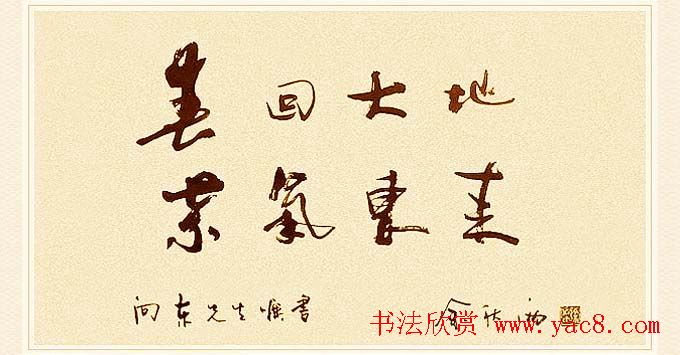 春回大地
紫氣東來
向东先生嘱书
余秋雨
书法欣赏 www.yac8.com